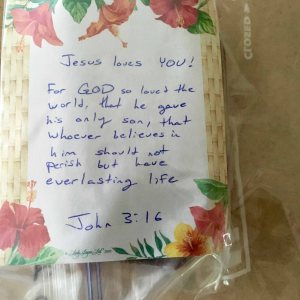 Jesus loves YOU!
For GOD so loved the
world, that he gave
his only son, that
whoever believes in
him should not
perish but have
everlasting life
John 3:16
CLOSED